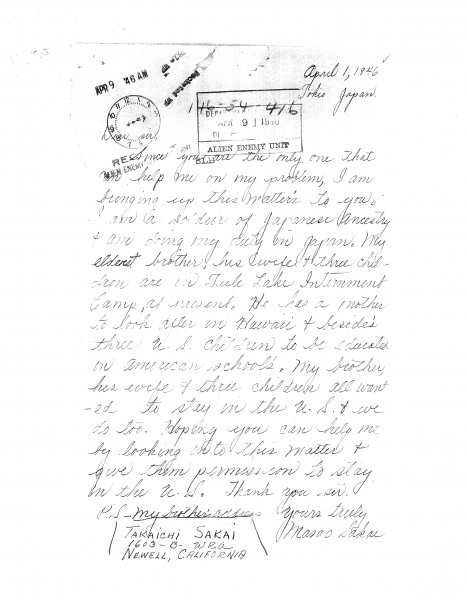 APR 9 '46 AM
April 1, 1946
Tokio Japan.
146-54-416
APR 9 1946
ALIEN ENEMY UNIT
Dear sir,
Since you are the only one that
help me on my problem, I am
bringing up this matter's to you.
I am a soldier of Japanese Ancestry
& am doing my duty in Japan. My
elderest brother, his wife & three chil-
dren are in Tule Lake Internment
Camp, at present. He has a mother
to look after in Hawaii & beside's
three U.S. children to be educated
in American school's. My brother,
his wife & three children all want
-ed to stay in the U.S. & we
do too. Hoping you can help me
by looking into this matter &
give them permission to stay
in the U.S. Thank you sir.
P.S. My brother address Yours truly
Masao Sakai
TAKAICHI SAKAI
1603-B- WRA
NEWELL, CALIFORNIA